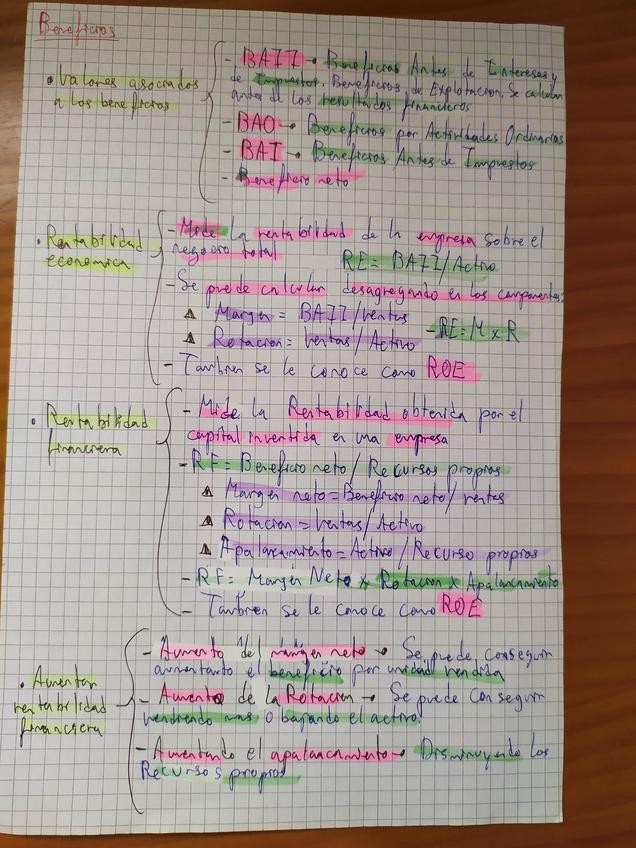 Beneficios
• Valores asociados
a los beneficios
- BAII → Beneficios Antes de Intereses y
de Impuestos, Beneficios de Explotacion, Se calculan
antes de los resultados financieros
- BAO → Beneficios por Actividades Ordinarias
- BAI → Beneficios Antes de Impuestos
- Beneficio neto
• Rentabilidad
economica
- Mide la rentabilidad de la empresa sobre el
negocio total
RE = BAII/Activo
- Se puede calcular desagregando en los componentes:
Margen = BAII/ventas
Rotacion = Ventas/Activo
- RE = M x R
- Tambien se le conoce como ROE
• Rentabilidad
financiera
- Mide la Rentabilidad obtenida por el
capital invertida en una empresa
- RF = Beneficio neto / Recursos propios
Margen neto = Beneficio neto / ventas
Rotacion = Ventas/Activo
Apalancamiento = Activo / Recurso propios
- RF = Margen Neto x Rotacion x Apalancamiento
- Tambien se le conoce como ROE
• Aumentar
rentabilidad
financiera
- Aumento del márgen neto → Se puede conseguir
aumentanto el beneficio por unidad vendida
- Aumento de la Rotacion → Se puede conseguir
vendiendo mas o bajando el activo
- Aumentando el apalancamiento → Disminuyendo los
Recursos propios